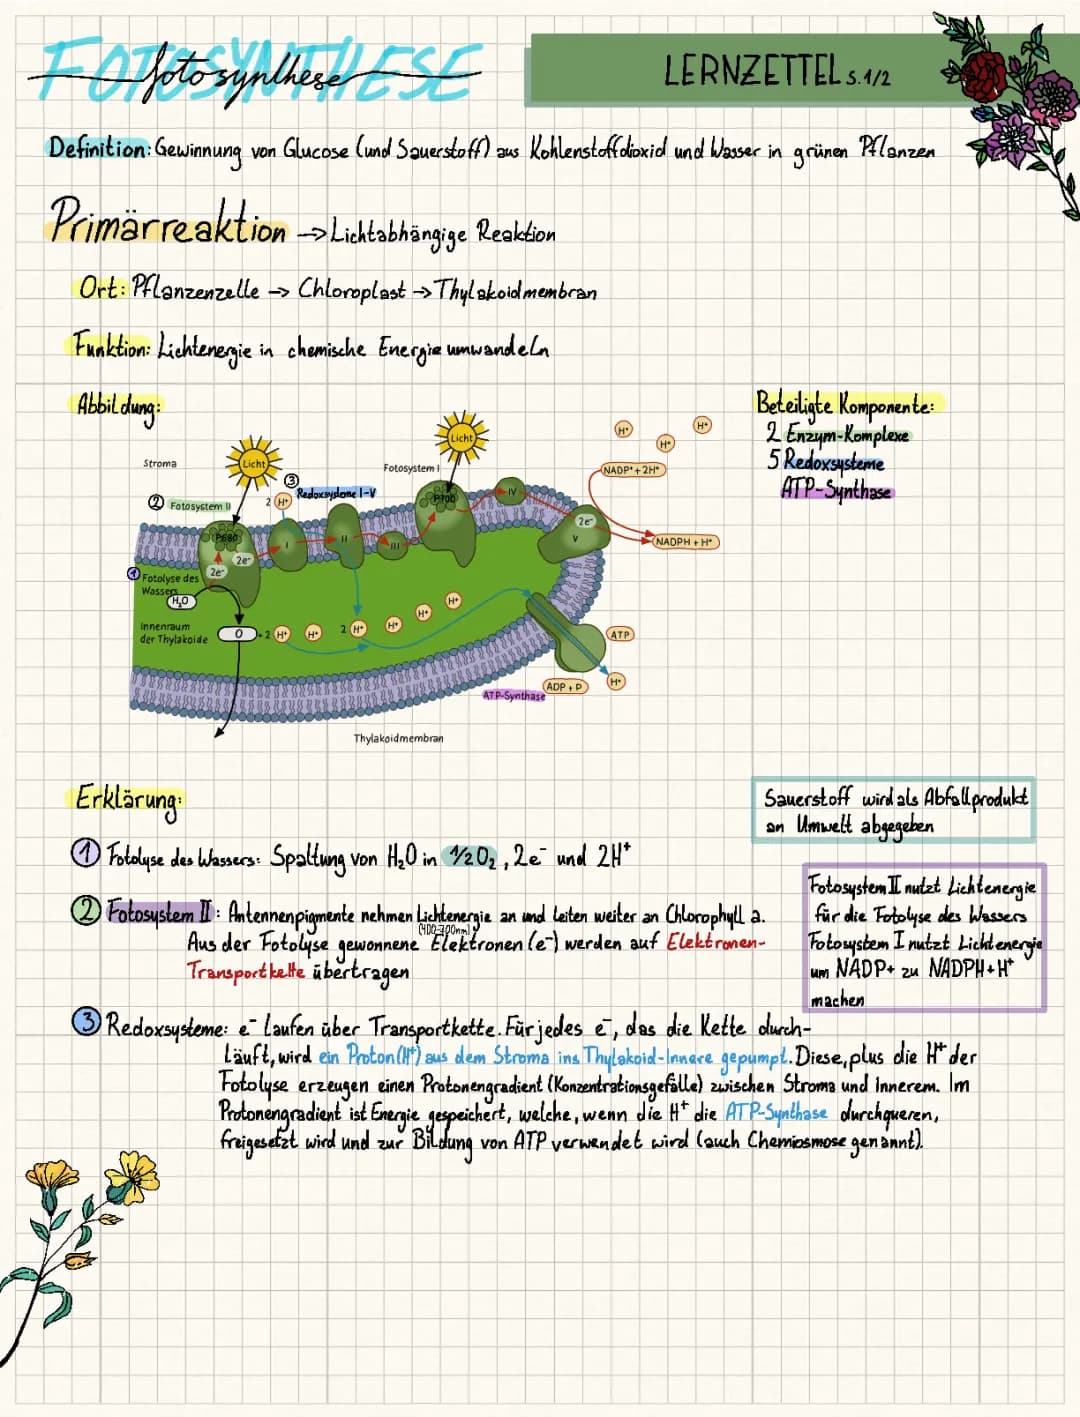 FOTOSYNTHESE
fotosynthese
LERNZETTEL S. 1/2
Definition: Gewinnung von Glucose (und Sauerstoff) aus Kohlenstoffdioxid und Wasser in grünen Pflanzen
Primärreaktion -> Lichtabhängige Reaktion
Ort: Pflanzenzelle -> Chloroplast -> Thylakoidmembran
Funktion: Lichtenergie in chemische Energie umwandeln
Abbildung:
Beteiligte Komponente:
2 Enzym-Komplexe
5 Redoxsysteme
ATP-Synthase
Stroma
Licht
Licht
Fotosystem I
H⁺
H⁺
H⁺
NADP⁺ + 2H⁺
③
Redoxsysteme I-V
② Fotosystem II
2 H⁺
P680
P700
I
II
III
IV
V
2e⁻
2e⁻
2e⁻
NADPH + H⁺
① Fotolyse des
Wassers
H₂O
Innenraum
der Thylakoide
O + 2 H⁺
H⁺
2 H⁺
H⁺
H⁺
H⁺
ATP
H⁺
ADP + P
ATP-Synthase
Thylakoidmembran
Erklärung:
Sauerstoff wird als Abfallprodukt
an Umwelt abgegeben
① Fotolyse des Wassers: Spaltung von H₂O in 1/2 O₂, 2e⁻ und 2H⁺
② Fotosystem II: Antennenpigmente nehmen Lichtenergie an und leiten weiter an Chlorophyll a.
(400-700nm)
Aus der Fotolyse gewonnene Elektronen (e⁻) werden auf Elektronen-
Transportkette übertragen
Fotosystem II nutzt Lichtenergie
für die Fotolyse des Wassers
Fotosystem I nutzt Lichtenergie
um NADP+ zu NADPH+H⁺
machen
③ Redoxsysteme: e⁻ laufen über Transportkette. Für jedes e⁻, das die Kette durch-
läuft, wird ein Proton (H⁺) aus dem Stroma ins Thylakoid-Innere gepumpt. Diese, plus die H⁺ der
Fotolyse erzeugen einen Protonengradient (Konzentrationsgefälle) zwischen Stroma und innerem. Im
Protonengradient ist Energie gespeichert, welche, wenn die H⁺ die ATP-Synthase durchqueren,
freigesetzt wird und zur Bildung von ATP verwendet wird (auch Chemiosmose genannt).